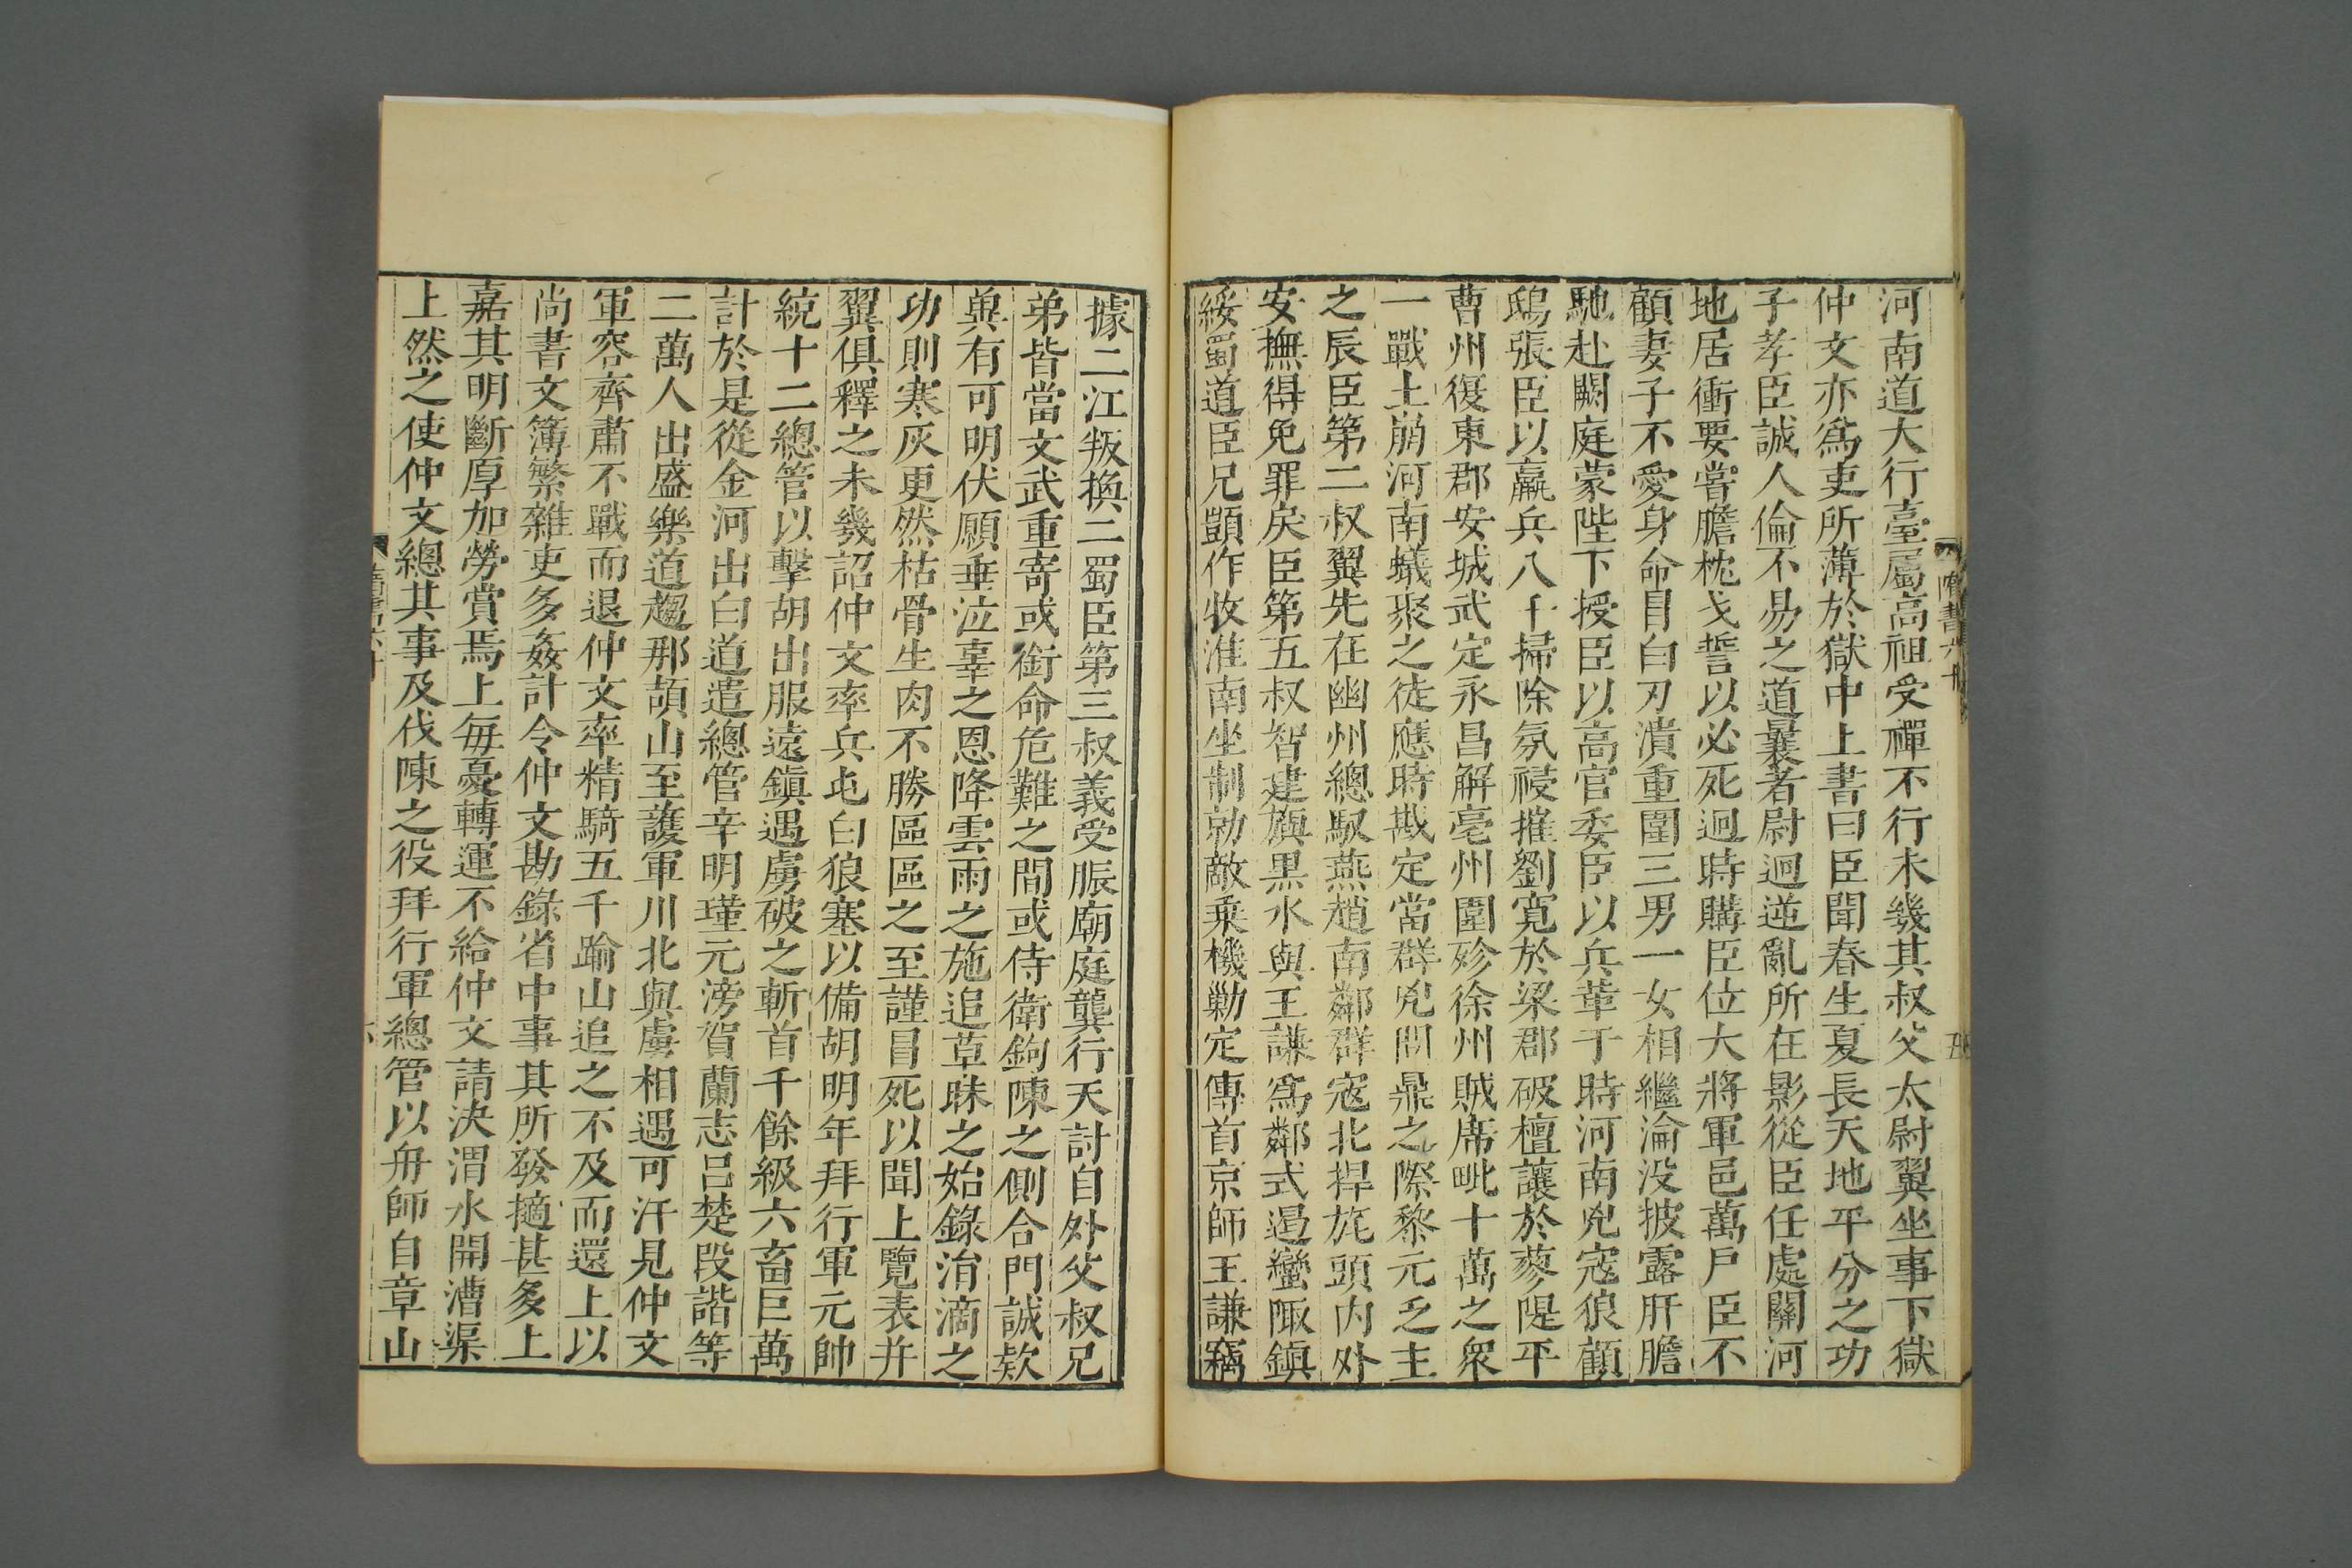 河南道大行臺屬高祖受禪不行未幾其叔父太尉翼坐事下獄
仲文亦爲吏所簿於獄中上書曰臣聞春生夏長天地平分之功
子孝臣誠人倫不易之道曩者尉迥逆亂所在影從臣任處關河
地居衝要嘗膽枕戈誓以必死迥時購臣位大將軍邑萬戶臣不
顧妻子不愛身命冒白刃潰重圍三男一女相繼淪没披露肝膽
馳赴闕庭蒙陛下授臣以高官委臣以兵革于時河南兇寇狼顧
鴟張臣以羸兵八千掃除氛祲摧劉寬於梁郡破檀讓於蓼隄平
曹州復東郡安城武定永昌解亳州圍殄徐州賊席毗十萬之衆
一戰土崩河南蟻聚之徒應時戡定當群兇問鼎之際黎元乏主
之辰臣第二叔翼先在幽州總馭燕趙南鄰群寇北捍旄頭内外
安撫得免罪戾臣第五叔智建旟黒水與王謙爲鄰式遏蠻陬鎮
綏蜀道臣兄顗作牧淮南坐制勍敵乗機勦定傳首京師王謙竊
隋書六十
五
據二江叛換三蜀臣第三叔義受脤廟庭龔行天討自外父叔兄
弟皆當文武重寄或銜命危難之間或侍衛鉤陳之側合門誠欵
兾有可明伏願垂泣辜之恩降雲雨之施追草昧之始錄涓滴之
功則寒灰更然枯骨生肉不勝區區之至謹冒死以聞上覽表并
翼俱釋之未幾詔仲文率兵屯白狼塞以備胡明年拜行軍元帥
統十二總管以擊胡出服遠鎮遇虜破之斬首千餘級六畜巨萬
計於是從金河出白道遣總管辛明瑾元滂賀蘭志呂楚段諧等
二萬人出盛樂道趨那頡山至護軍川北與虜相遇可汗見仲文
軍容齊肅不戰而退仲文率精騎五千踰山追之不及而還上以
尚書文簿繁雜吏多姦計令仲文勘錄省中事其所發擿甚多上
嘉其明斷厚加勞賞焉上每憂轉運不給仲文請決渭水開漕渠
上然之使仲文總其事及伐陳之役拜行軍總管以舟師自章山